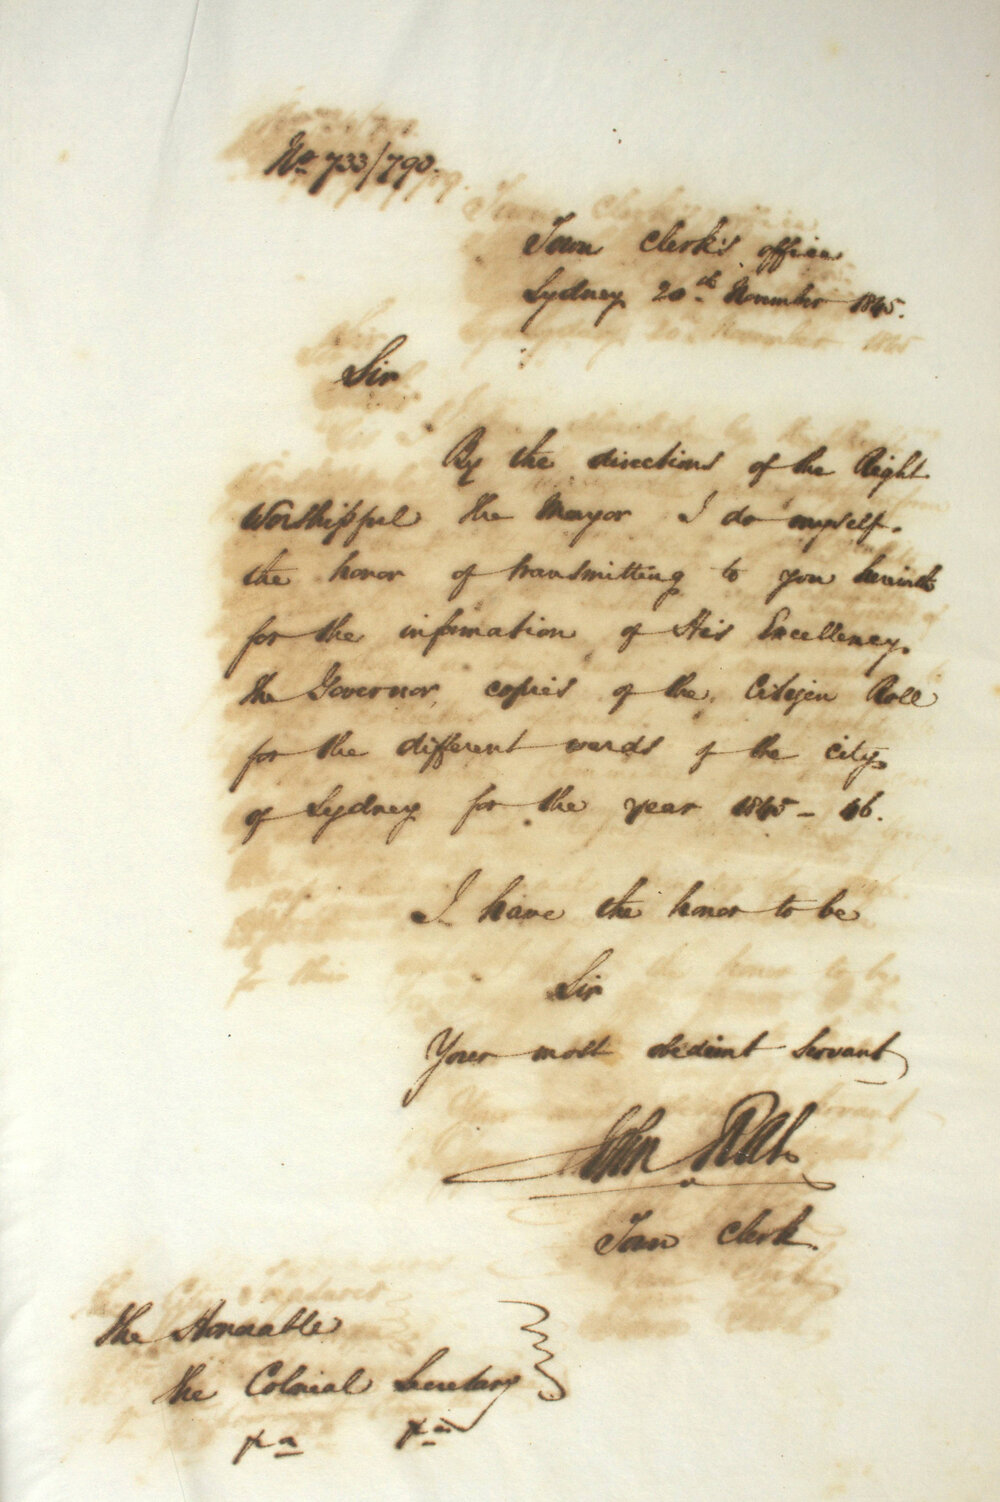 No 733/790.
Town Clerk's office
Sydney 20th November 1845.
Sir
By the directions of the Right
Worshipful the Mayor I do myself.
the honor of transmitting to you herewith
for the information of His Excellency.
the Governor, copies of the Citizen Roll
for the different wards of the city
of Sydney for the year 1845 - 46.
I have the honor to be
Sir
Your most obedient Servant
John
Town Clerk.
The Honorable
the Colonial Secretary